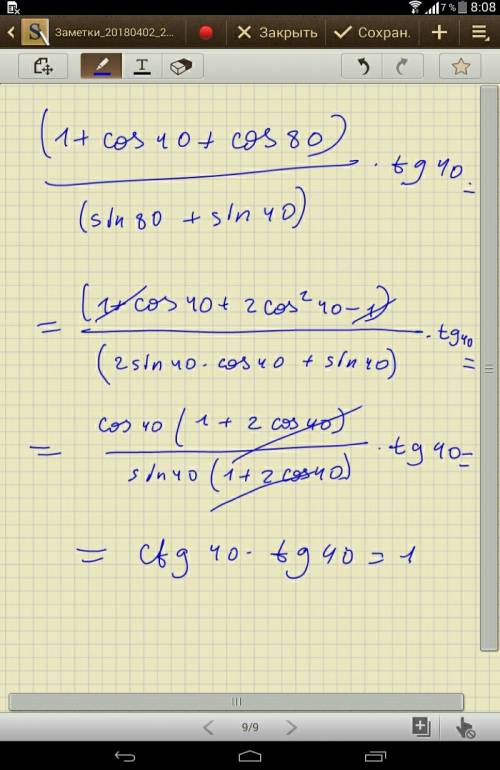 7% 8:08
Заметки_20180402_2... Закрыть Сохран.
T
(1 + cos 40 + cos 80)
(sin 80 + sin 40) · tg 40 =
= (1 + cos 40 + 2 cos² 40 - 1)
(2 sin 40 · cos 40 + sin 40) · tg 40 =
= cos 40 (1 + 2 cos 40)
sin 40 (1 + 2 cos 40) · tg 40 =
= ctg 40 · tg 40 = 1
9/9